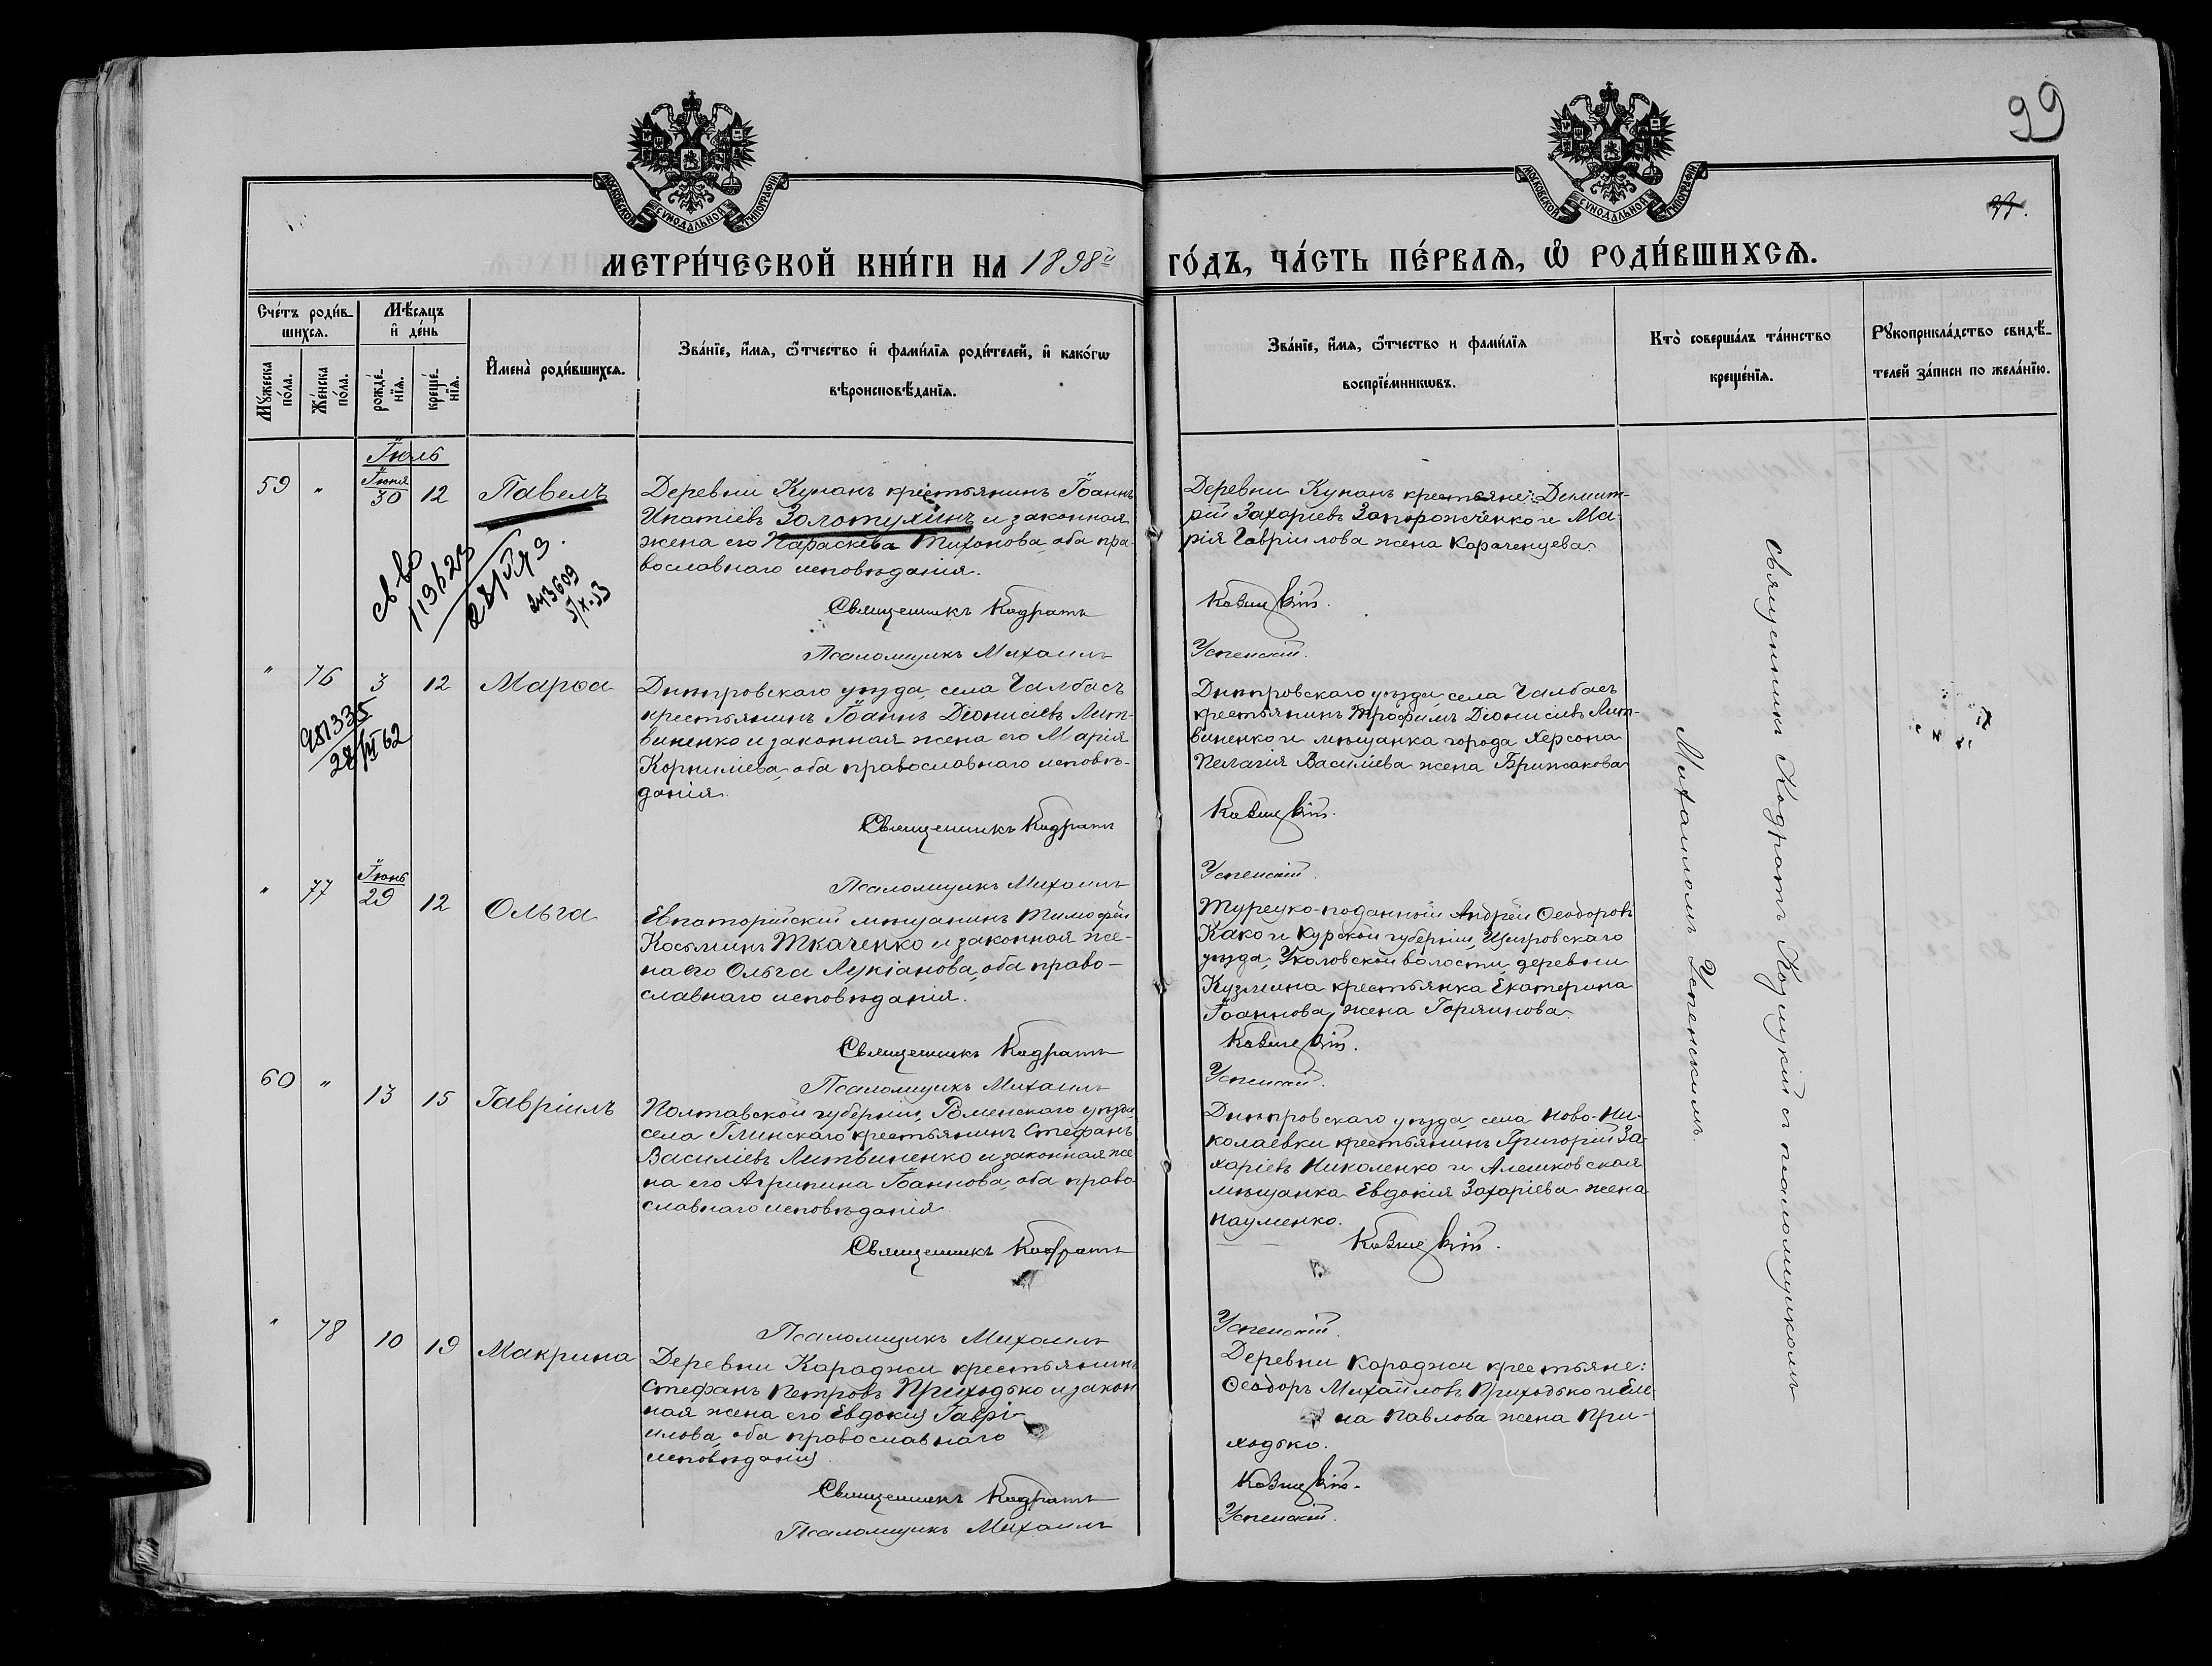 99
МОСКОВСКОЙ СУНОДАЛЬНОЙ ТИПОГРАФІИ
МОСКОВСКОЙ СУНОДАЛЬНОЙ ТИПОГРАФІИ
МЕТРИ́ЧЕСКОЙ КНИ́ГИ НА 1898й ГО́ДЪ, ЧА́СТЬ ПЕ́РВАѦ, Ѡ҆ РОДИ́ВШИХСѦ.
Сче́тъ роди́в-
шихсѧ.
Мꙋ́жеска по́ла.
Же́нска по́ла.
Мѣ́сѧцъ
и҆ де́нь
рожде́-
нїѧ.
креще́-
нїѧ.
И҆мена̀ роди́вшихсѧ.
Зва́нїе, и҆́мѧ, ѻ҆́тчество и҆ фами́лїѧ роди́телей, и҆ како́гѡ
вѣроисповѣ́данїѧ.
Зва́нїе, и҆́мѧ, ѻ҆́тчество и фами́лїѧ
воспрїе́мникѡвъ.
Кто̀ соверша́лъ та́инство
креще́нїѧ.
Рꙋкоприкла́дство свидѣ́-
телей за́писи по жела́нїю.
Іюль
59 " Іюня 30 12 Павелъ
Деревни Кунанъ крестьянинъ Іоаннъ
Ипатіевъ Золотухинъ и законная
жена его Параскева Тихонова, оба пра-
вославнаго исповѣданія.
Священникъ Кодратъ
Псаломщикъ Михаилъ
Деревни Кунанъ крестьяне: Димит-
рій Захаріевъ Запорожченко и Ма-
рія Гавріилова жена Караченцева.
Козицкій.
Успенскій.
св во
119623
243609
5/X-53
" 76 3 12 Марѳа
981335
28/III 62
Днѣпровскаго уѣзда, села Чалбасъ
крестьянинъ Іоаннъ Діонисіевъ Лит-
виненко и законная жена его Марія
Корниліева, оба православнаго исповѣ-
данія.
Священникъ Кодратъ
Псаломщикъ Михаилъ
Днѣпровскаго уѣзда, села Чалбасъ
крестьянинъ Трофимъ Діонисіевъ Лит-
виненко и мѣщанка города Херсона
Пелагія Василіева жена Брижакова
Козицкій.
Успенскій.
" 77 Іюнь 29 12 Ольга
Евпаторійскій мѣщанинъ Тимофей
Косьминъ Ткаченко и законная же-
на его Ольга Лукіанова, оба право-
славнаго исповѣданія.
Священникъ Кодратъ
Псаломщикъ Михаилъ
Турецко-поданный Андрей Ѳеодоровъ
Како и Курской губерніи, Щигровскаго
уѣзда, Уколовской волости, деревни
Кузмина крестьянка Екатерина
Іоаннова, жена Горяинова.
Козицкій.
Успенскій.
60 " 13 15 Гавріилъ
Полтавской губерніи, Роменскаго уѣзда,
села Глинскаго крестьянинъ Стефанъ
Василіевъ Литвиненко и законная же
на его Агрипина Іоаннова, оба право
славнаго исповѣданія.
Священникъ Кодратъ
Псаломщикъ Михаилъ
Днѣпровскаго уѣзда, села Ново-Ни-
колаевки крестьянинъ Григорій За-
харіевъ Николенко и Алешковская
мѣщанка Евдокія Захаріева жена
Науменко.
Козицкій.
Успенскій.
" 78 10 19 Макрина
Деревни Караджи крестьянинъ
Стефанъ Петровъ Приходько и закон
ная жена его Евдокія Гаврі-
илова, оба православнаго
исповѣданія.
Священникъ Кодратъ
Псаломщикъ Михаилъ
Деревни Караджи крестьяне:
Ѳеодоръ Михайловъ Приходько и Еле-
на Павлова жена При-
ходько.
Козицкій.
Успенскій.
Священникъ Кодратъ Козицкій съ псаломщикомъ
Михаиломъ Успенскимъ.